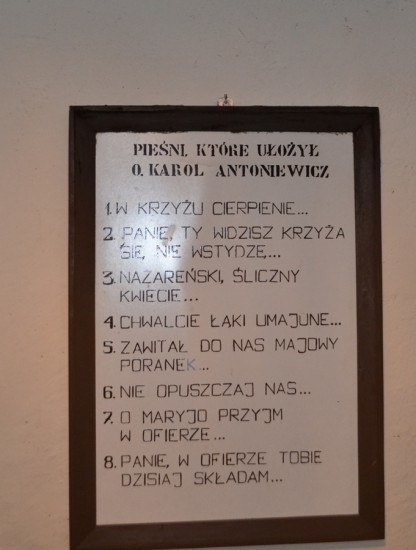 PIEŚNI, KTÓRE UŁOŻYŁ
O. KAROL ANTONIEWICZ
1. W KRZYŻU CIERPIENIE...
2. PANIE, TY WIDZISZ KRZYŻA
SIĘ, NIE WSTYDZĘ...
3. NAZAREŃSKI, ŚLICZNY
KWIECIE...
4. CHWALCIE ŁĄKI UMAJUNE...
5. ZAWITAŁ DO NAS MAJOWY
PORANEK...
6. NIE OPUSZCZAJ NAS...
7. O MARYJO PRZYJM
W OFIERZE...
8. PANIE, W OFIERZE TOBIE
DZISIAJ SKŁADAM...